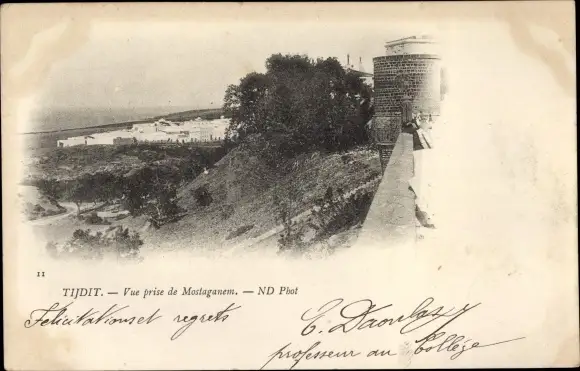 11
TIJDIT. — Vue prise de Mostaganem. — ND Phot
Félicitations et regrets
professeur au Collège